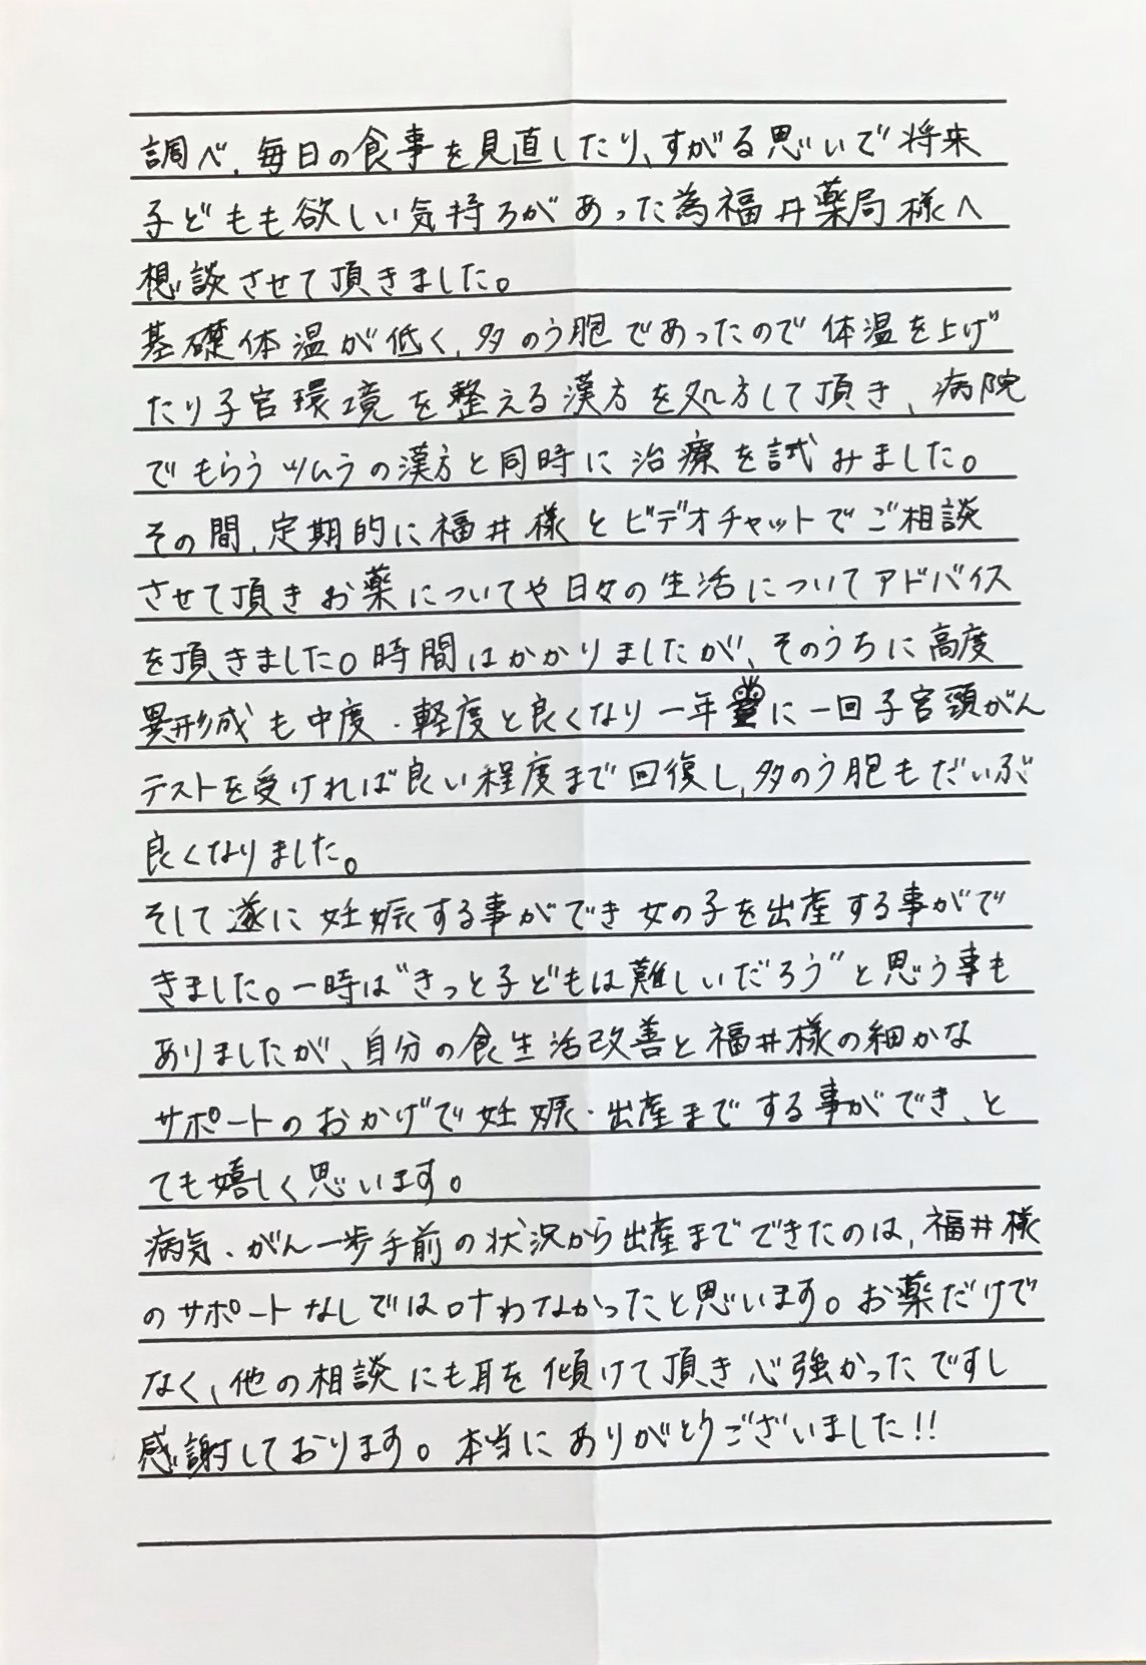 調べ、毎日の食事を見直したり、すがる思いで将来
子どもも欲しい気持ちがあった為福井薬局様へ
想談させて頂きました。
基礎体温が低く、多のう胞であったので体温を上げ
たり子宮環境を整える漢方を処方して頂き、病院
でもらうツムラの漢方と同時に治療を試みました。
その間、定期的に福井様とビデオチャットでご相談
させて頂きお薬についてや日々の生活についてアドバイス
を頂きました。時間はかかりましたが、そのうちに高度
異形成も中度・軽度と良くなり一年に一回子宮頸がん
テストを受ければ良い程度まで回復し、多のう胞もだいぶ
良くなりました。
そして遂に妊娠する事ができ女の子を出産する事がで
きました。一時は"きっと子どもは難しいだろう"と思う事も
ありましたが、自分の食生活改善と福井様の細かな
サポートのおかげで妊娠・出産までする事ができ、と
ても嬉しく思います。
病気・がん一歩手前の状況から出産までできたのは、福井様
のサポートなしでは叶わなかったと思います。お薬だけで
なく、他の相談にも耳を傾けて頂き心強かったですし
感謝しております。本当にありがとうございました!!